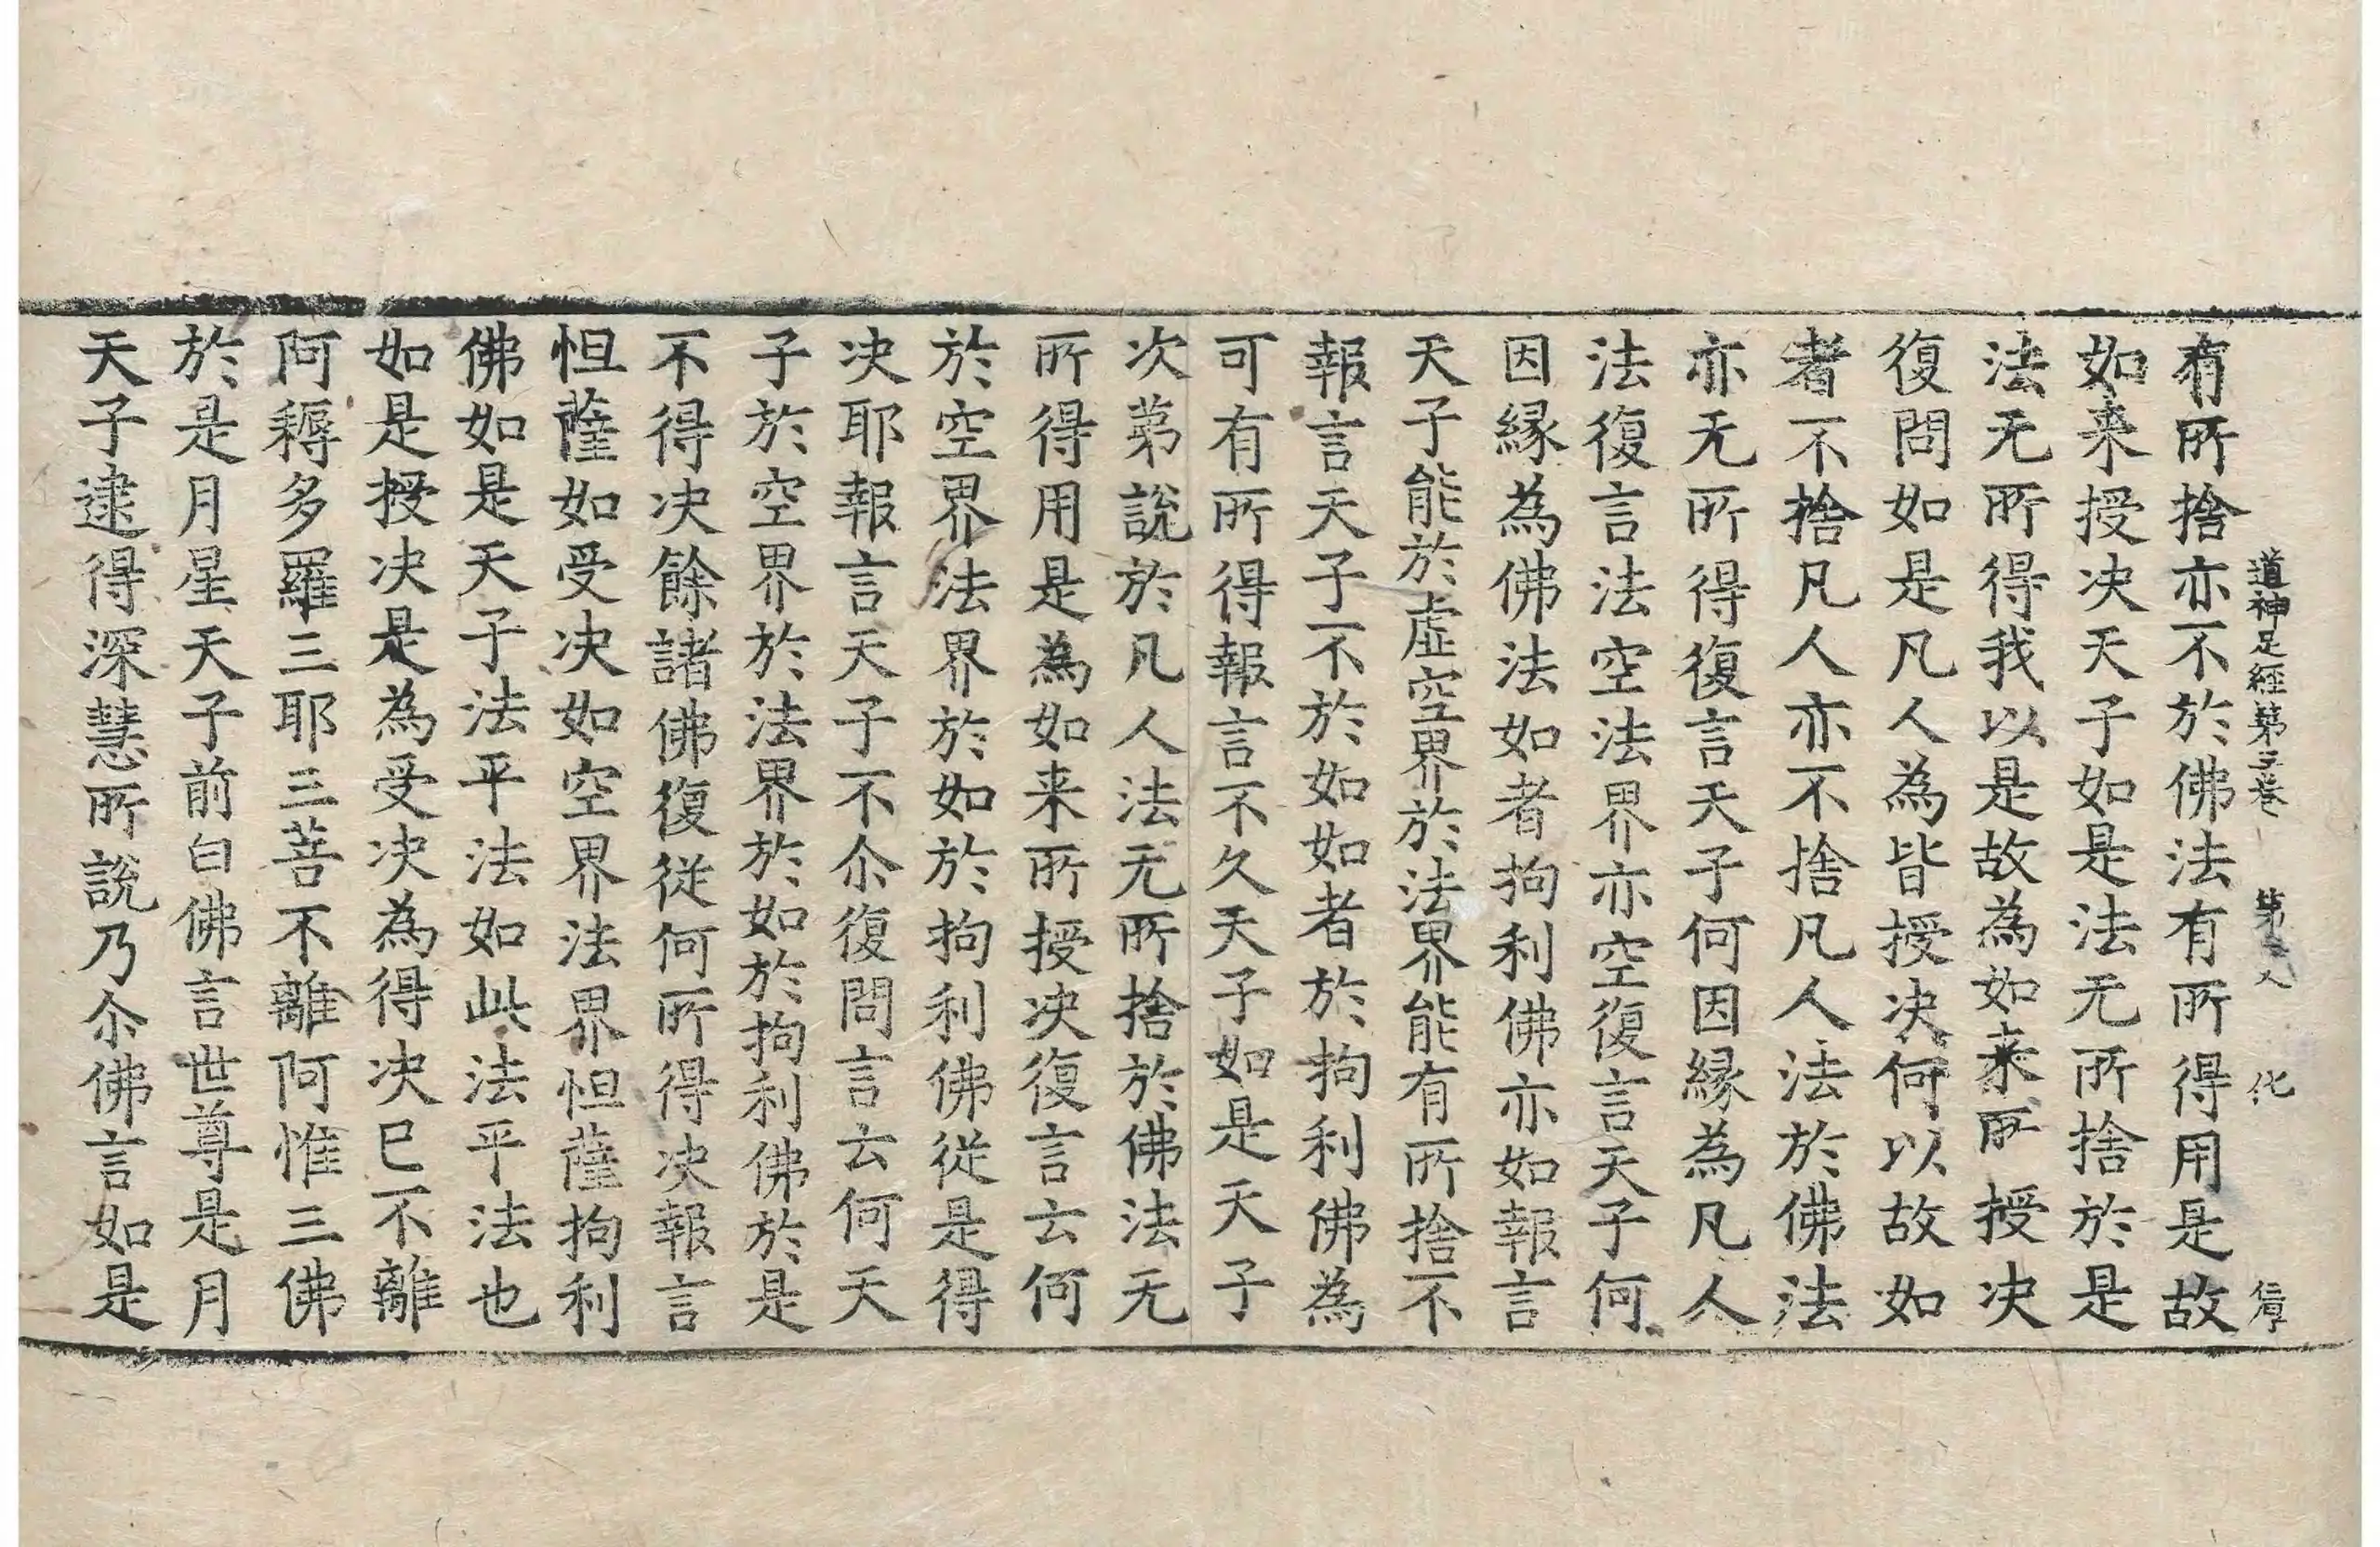 道神足經第三卷 第二 化
有所捨亦不於佛法有所得用是故
如来授决天子如是法无所捨於是
法无所得我以是故為如来所授决
復問如是凡人為皆授决何以故如
者不捨凡人亦不捨凡人法於佛法
亦无所得復言天子何因縁為凡人
法復言法空法界亦空復言天子何
因縁為佛法如者拘利佛亦如報言
天子能於虛空界於法界能有所捨不
報言天子不於如如者於拘利佛為
可有所得報言不久天子如是天子
次苐說於凡人法无所捨於佛法无
所得用是為如来所授决復言云何
於空界法界於如於拘利佛從是得
决耶報言天子不尒復問言云何天
子於空界於法界於如於拘利佛於是
不得决餘諸佛復從何所得决報言
怛薩如受决如空界法界怛薩拘利
佛如是天子法平法如此法平法也
如是授决是為受决為得决已不離
阿耨多羅三耶三菩不離阿惟三佛
於是月星天子前白佛言世尊是月
天子逮得深慧所說乃尒佛言如是